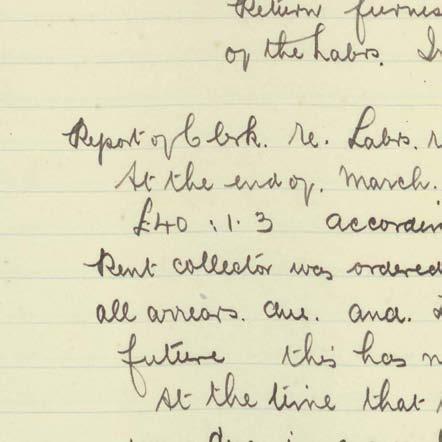 Return furnis
of the Labrs. I
Report of Clerk. re. Labrs.
At the end of. March.
£40 : 1 . 3 accordin
Rent collector was ordered
all arrears. due. and.
future this has n
At the time that